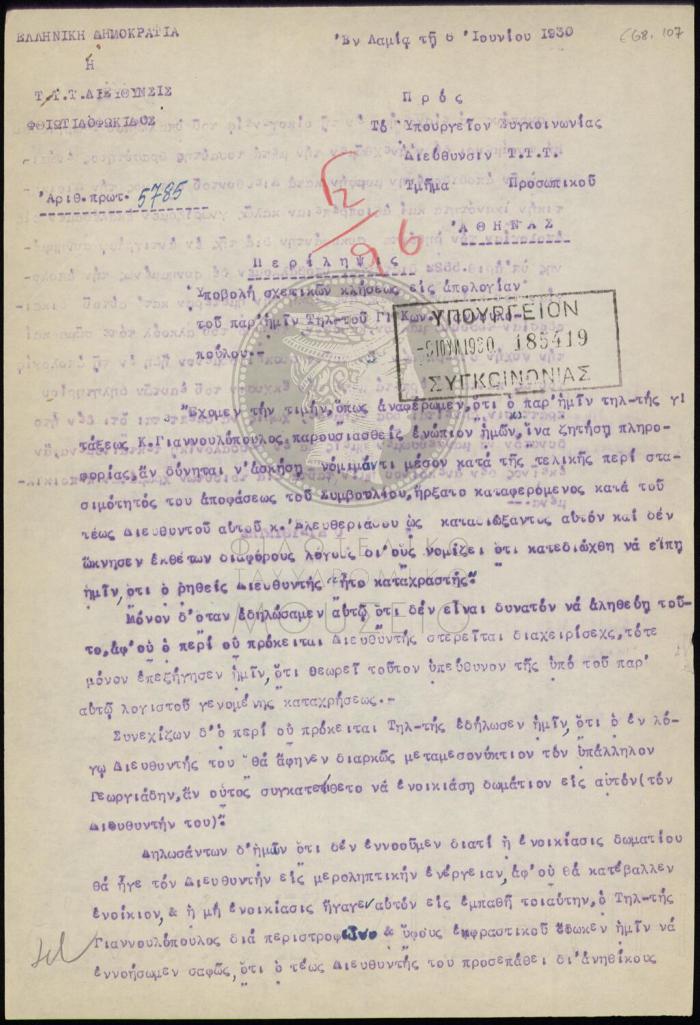 ΕΛΛΗΝΙΚΗ ΔΗΜΟΚΡΑΤΙΑ
Ἡ
Τ.Τ.Τ.ΔΙΕΥΘΥΝΣΙΣ
ΦΘΙΩΤΙΔΟΦΩΚΙΔΟΣ
Ἀριθ.πρωτ. 5785
Ἐν Λαμίᾳ τῇ 6 Ἰουνίου 1930
668.107
Πρός
Τό Ὑπουργεῖον Συγκοινωνίας
Διεύθυνσιν Τ.Τ.Τ.
Τμῆμα Προσωπικοῦ
ἈΘΗΝΑΣ
96
Περίληψις
Ὑποβολή σχετικῶν κλήσεως εἰς ἀπολογίαν
τοῦ παρ'ἡμῖν Τηλ-τοῦ Γ! Κων.
πούλου.-
ΥΠΟΥΡΓΕΙΟΝ
ΙΟΥΝ.1930. 185419
ΣΥΓΚΟΙΝΩΝΙΑΣ
Ἔχομεν τήν τιμήν, ὅπως ἀναφέρωμεν, ὅτι ὁ παρ'ἡμῖν τηλ-τής γ!
τάξεως Κ.Γιαννουλόπουλος παρουσιασθείς ἐνώπιον ἡμῶν, ἵνα ζητήσῃ πληρο-
φορίας, ἄν δύνηται ν'ἀσκήσῃ νόμιμόν τι μέσον κατά τῆς τελικῆς περί στα-
σιμότητός του ἀποφάσεως τοῦ Συμβουλίου, ἤρξατο καταφερόμενος κατά τοῦ
τέως Διευθυντοῦ αὐτοῦ κ. Ἐλευθεριάδου ὡς καταδιώξαντος αὐτόν καί δέν
ὤκνησεν ἐκθέτων διαφόρους λόγους δι'οὕς νομίζει ὅτι κατεδιώχθη νά εἴπῃ
ἡμῖν, ὅτι ὁ ῥηθείς Διευθυντής "ἦτο καταχραστής".
Μόνον δ'ὅταν ἐδηλώσαμεν αὐτῷ, ὅτι δέν εἶναι δυνατόν νά ἀληθεύῃ τοῦ-
το, ἀφ'οὗ ὁ περί οὗ πρόκειται Διευθυντής στερεῖται διαχειρίσεως, τότε
μόνον ἐπεξήγησεν ἡμῖν, ὅτι θεωρεῖ τοῦτον ὑπεύθυνον τῆς ὑπό τοῦ παρ'
αὐτῷ λογιστοῦ γενομένης καταχρήσεως.-
Συνεχίζων δ'ὁ περί οὗ πρόκειται Τηλ-τής ἐδήλωσεν ἡμῖν, ὅτι ὁ ἐν λό-
γῳ Διευθυντής του "θά ἄφηνεν διαρκῶς μεταμεσονύκτιον τόν ὑπάλληλον
Γεωργιάδην, ἄν οὗτος συγκατετίθετο νά ἐνοικιάσῃ δωμάτιον εἰς αὐτόν(τόν
Διευθυντήν του)".
Δηλωσάντων δ'ἡμῶν ὅτι δέν ἐννοοῦμεν διατί ἡ ἐνοικίασις δωματίου
θά ἦγε τόν Διευθυντήν εἰς μεροληπτικήν ἐνέργειαν, ἀφ'οὗ θά κατέβαλλεν
ἐνοίκιον, & ἡ μή ἐνοικίασις ἤγαγεν αὐτόν εἰς ἐμπαθῆ τοιαύτην, ὁ Τηλ-τής
Γιαννουλόπουλος διά περιστροφῶν & ὕφους ἐκφραστικοῦ ἔδωκεν ἡμῖν νά
ἐννοήσωμεν σαφῶς, ὅτι ὁ τέως Διευθυντής του προσεπάθει δι'ἀνηθίκους
ΦΙΛΟΤΕΛΙΚΟ
ΤΑΧΥΔΡΟΜΙΚΟ
ΜΟΥΣΕΙΟ